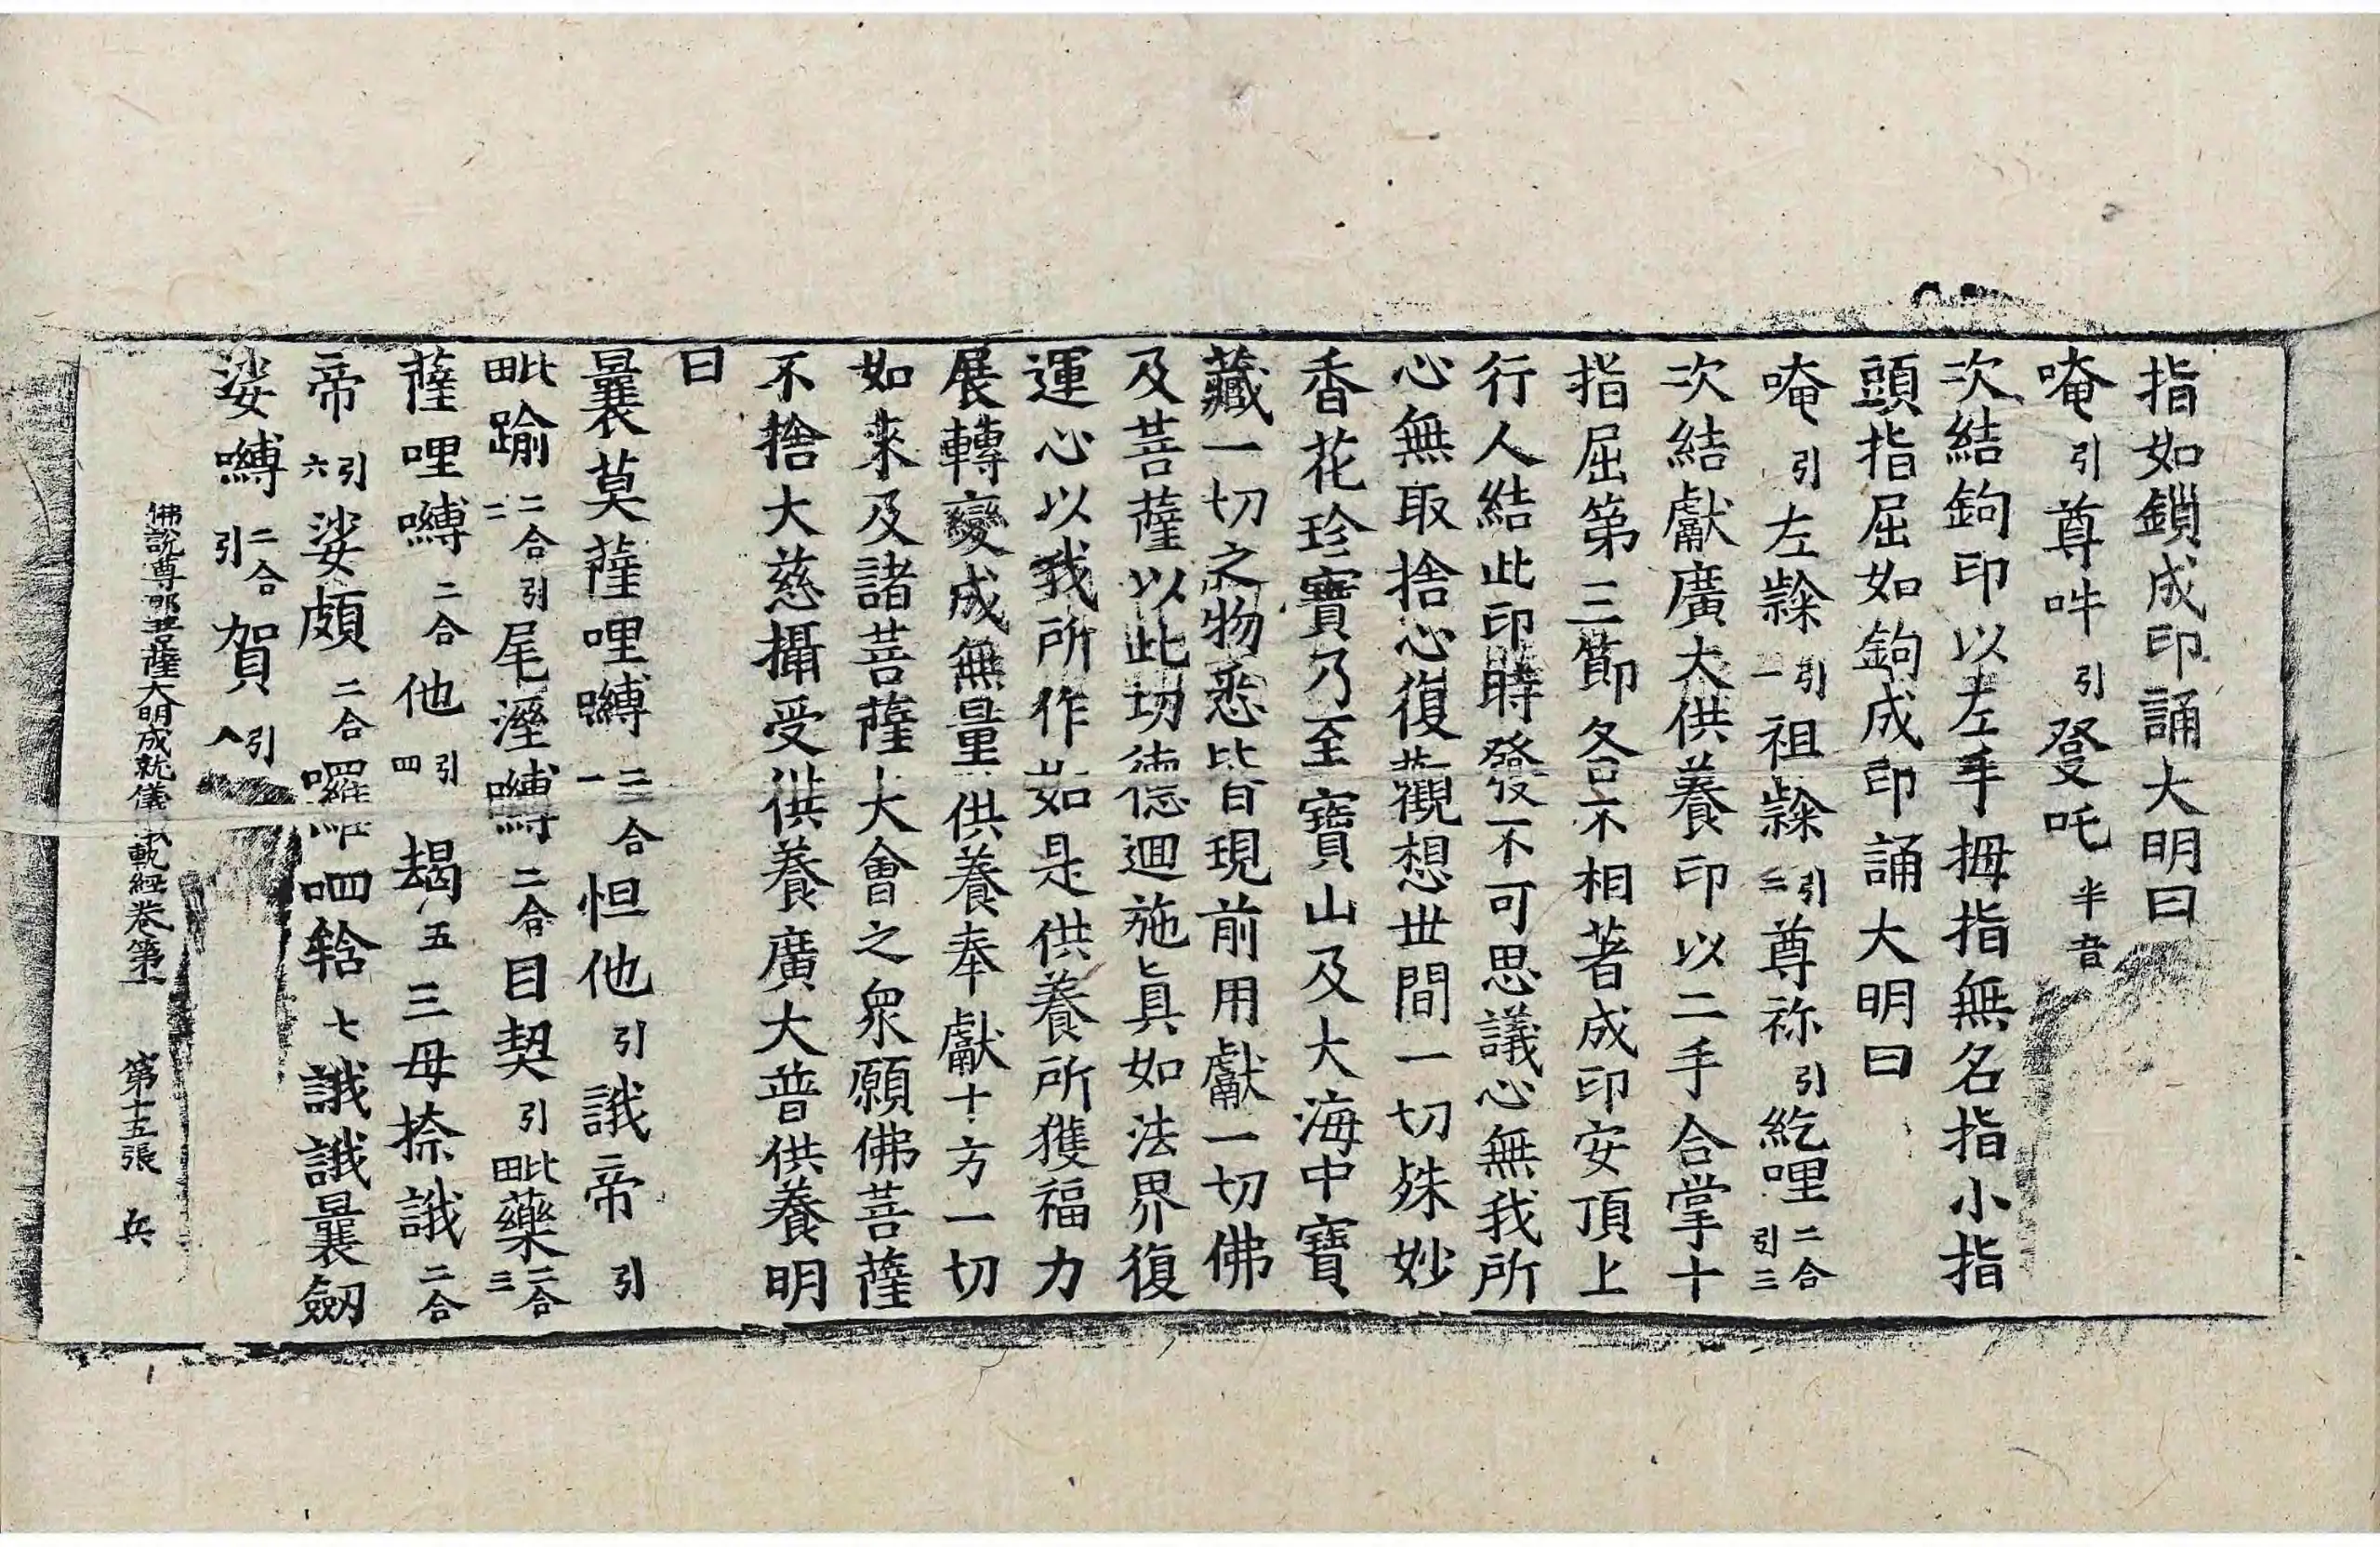 指如鎖成印誦大明曰
唵引尊吽引發吒半音
次結鉤印以左手拇指無名指小指
頭指屈如鉤成印誦大明曰
唵引左隸引一祖隸引二尊祢引紇哩二合引三
次結獻廣大供養印以二手合掌十
指屈第三節各不相著成印安頂上
行人結此印時發不可思議心無我所
心無取捨心復觀想世間一切殊妙
香花珍寶乃至寶山及大海中寶
藏一切之物悉皆現前用獻一切佛
及菩薩以此功德迴施眞如法界復
運心以我所作如是供養所獲福力
展轉變成無量供養奉獻十方一切
如來及諸菩薩大會之衆願佛菩薩
不捨大慈攝受供養廣大普供養明
曰
曩莫薩哩嚩二合一怛他引誐帝引
毗踰二合引二尾溼嚩二合目契引毗藥二合三
薩哩嚩二合他引四朅五三母捺誐二合
帝引六娑頗二合囉呬𤚥七誐誐曩劒
娑嚩二合引賀引八
佛說尊那菩薩大明成就儀軌經卷第 第十五張 兵